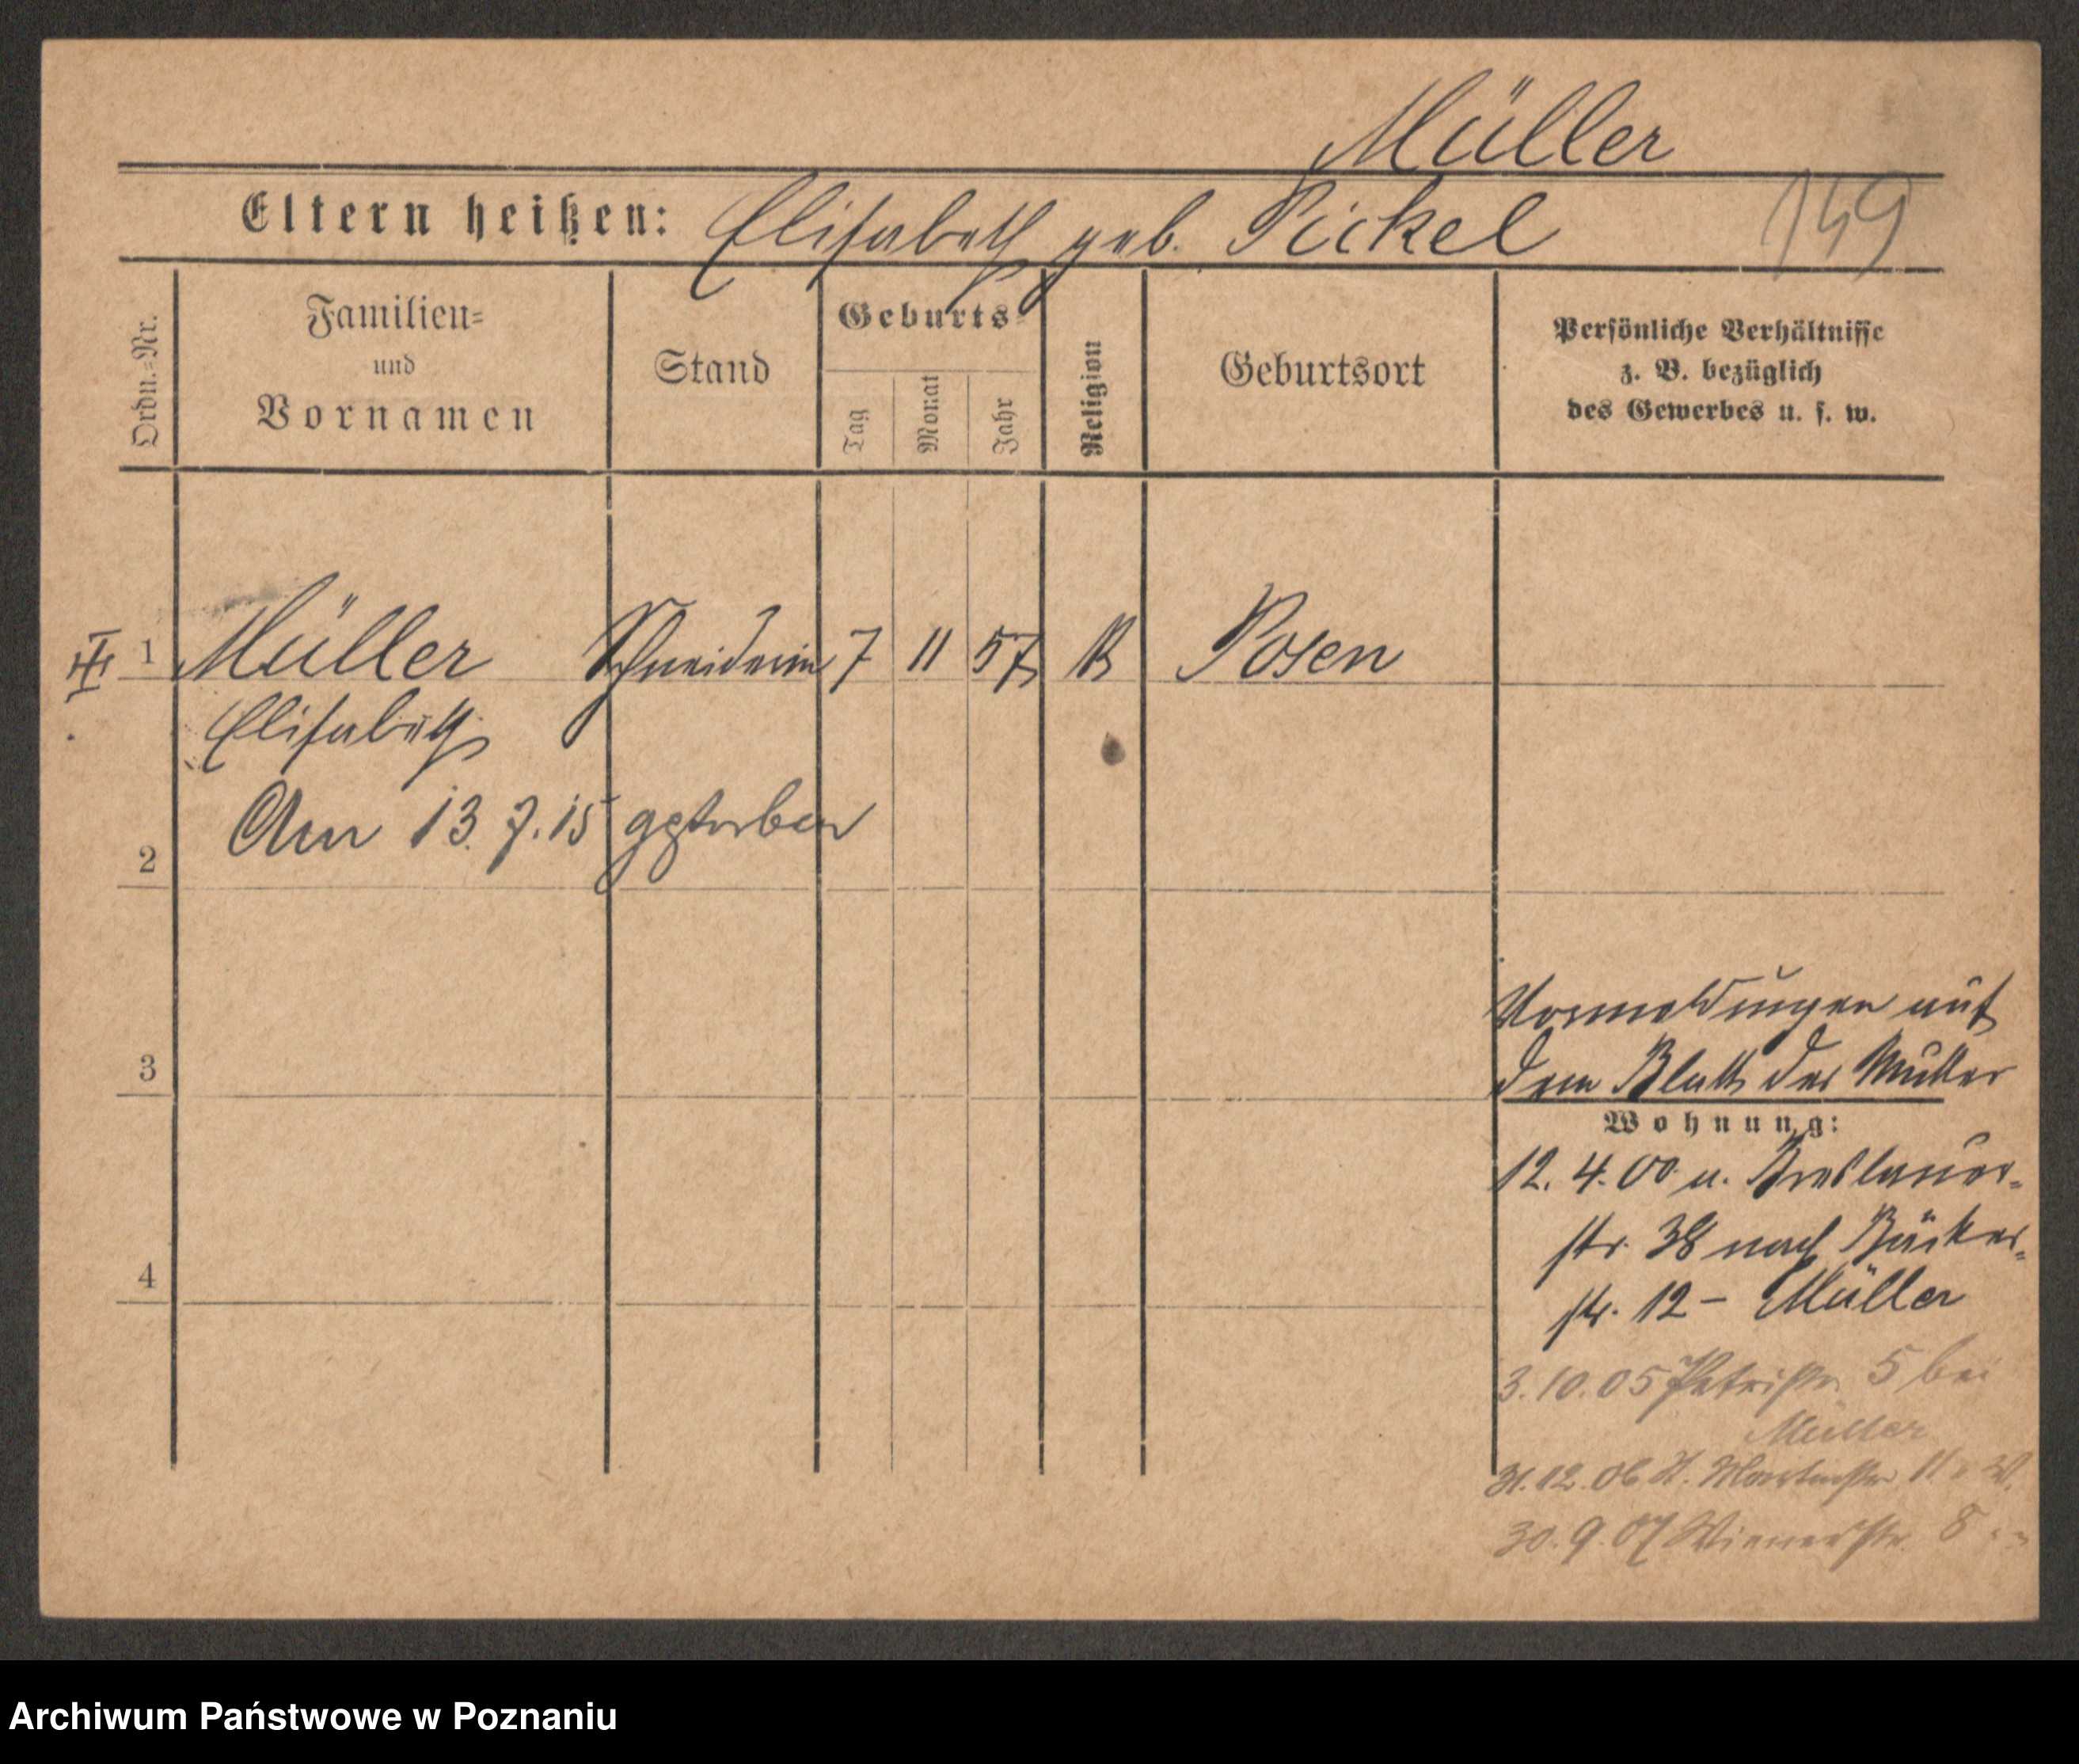 Müller
Eltern heißen: Elisabeth geb. Pickel 149
Ordn.=Nr.
Familien=
und
Vornamen
Stand
Geburts=
Tag
Monat
Jahr
Religion
Geburtsort
Persönliche Verhältnisse
z. B. bezüglich
des Gewerbes u. s. w.
III 1 Müller Schneiderin 7 11 57 Posen
Elisabeth
Am 13.7.15 gestorben
2
Vormeldungen auf
3
dem Blatt der Mutter
Wohnung:
12.4.00 v. Breslauer=
str. 38 nach Bäcker=
4
str. 12 – Müller
3.10.05 Petristr. 5 bei
Müller
31.12.06 St. Martinstr. 11
30.9.07 Wienerstr. 8
Archiwum Państwowe w Poznaniu